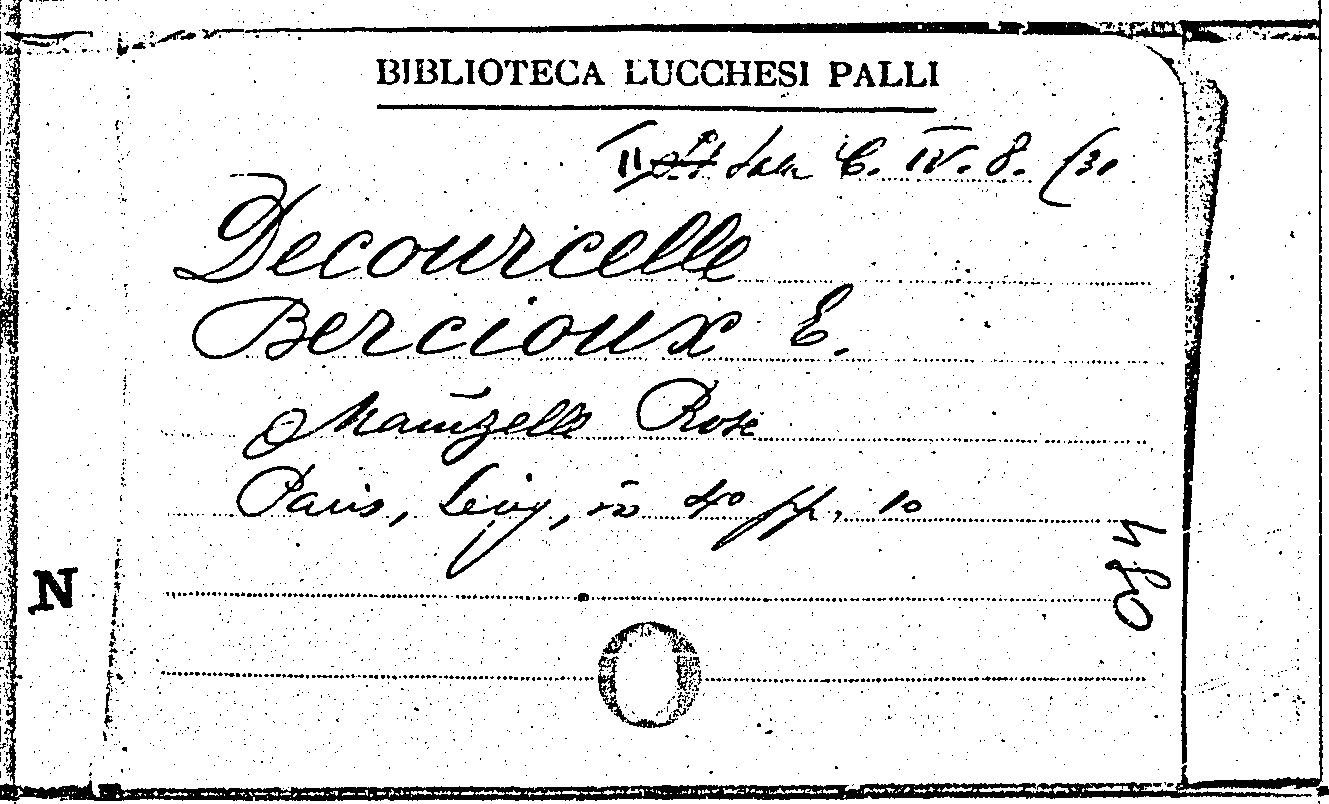 BIBLIOTECA LUCCHESI PALLI
II Sala C. IV. 8. (30
Decourcelle
Bercioux E.
Mam'zelle Rose
Paris, Levy, in 4º pp. 10
N